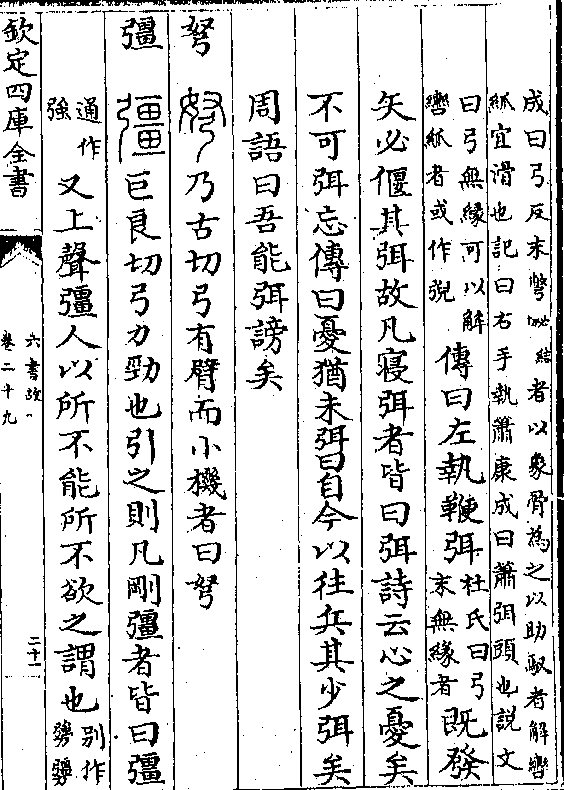 成曰弓反末彆必結者以象骨為之以助馭者解轡
紙宜滑也記曰右手執簫康成曰簫弭頭也說文
曰弓無緣可以解
轡紙者或作
傳曰左執鞭弭
杜氏曰弓
末無緣者
既發
矢必偃其弭故凡寢弭者皆曰弭詩云心之憂矣
不可弭忘傳曰憂猶未弭曰自今以往兵其少弭矣
周語曰吾能弭謗矣
弩 弩 乃古切弓有臂而小機者曰弩
彊 彊 巨良切弓力勁也引之則凡剛彊者皆曰彊
通作
強
又上聲彊人以所不能所不欲之謂也
別作
勥
欽定四庫全書
六書故
卷二十九
二十一